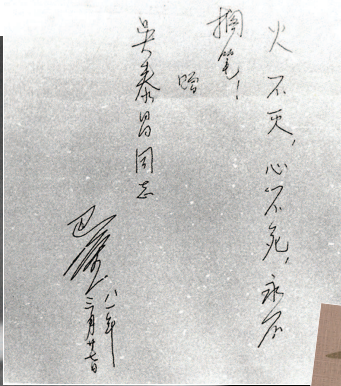 火不灭，心不死，永不
搁笔！
赠
吴泰昌同志
巴金
八一年
三月廿七日